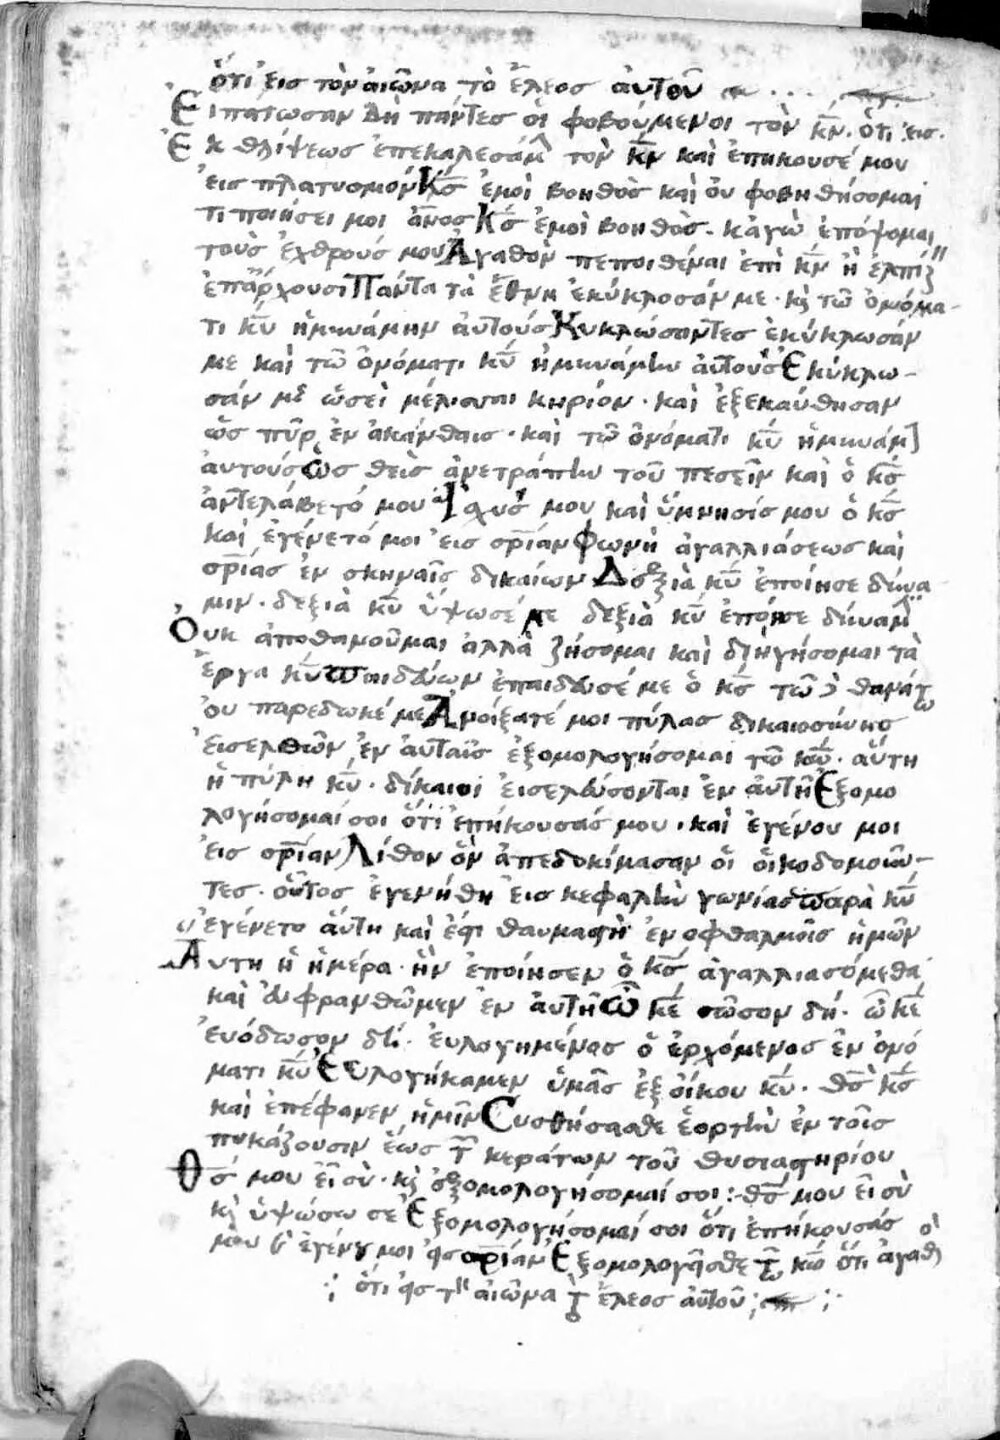 ὅτι εἰς τὸν αἰῶνα τὸ ἔλεος αὐτοῦ
Εἰπάτωσαν δὴ πάντες οἱ φοβούμενοι τὸν κν· ὅτι εἰς·
Ἐκ θλίψεως ἐπεκαλεσάμ τὸν κν καὶ ἐπήκουσέ μου
εἰς πλατυσμόν Κς ἐμοὶ βοηθὸς καὶ οὐ φοβηθήσομαι
τι ποιήσει μοι ανος Κς ἐμοὶ βοηθὸς· κἀγὼ ἐπόψομαι
τοὺς ἐχθρούς μου Ἀγαθὸν πεποιθέναι ἐπὶ κν ἢ ἐλπίζ
ἐπ ἄρχουσι Πάντα τὰ ἔθνη ἐκύκλοσάν με· κὶ τῶ ὀνόμα-
τι κυ ἠμυνάμην αὐτούς Κυκλώσαντες ἐκύκλωσάν
με καὶ τῶ ὀνόματι κυ ἠμυνάμην αὐτούς Ἐκύκλω-
σάν με ὡσεὶ μέλισσαι κηρίον· καὶ ἐξεκαύθησαν
ὡς πῦρ ἐν ἀκάνθαις· καὶ τῶ ὀνόματι κυ ἠμυνάμ
αὐτούς ὠσθεὶς ἀνετράπην τοῦ πεσεῖν καὶ ὁ κς
ἀντελάβετό μου Ἰσχυς μου καὶ ὕμνησίς μου ὁ κς
καὶ ἐγένετό μοι εἰς σριαν Φωνὴ ἀγαλλιάσεως καὶ
σριας ἐν σκηναῖς δικαίων Δεξιὰ κυ ἐποίησε δύνα
μιν· δεξιὰ κυ ὕψωσέ με δεξιὰ κυ ἐποίησε δύναμ
Οὐκ ἀποθανοῦμαι ἀλλὰ ζήσομαι καὶ διηγήσομαι τὰ
ἔργα κυ Παιδεύων ἐπαίδευσέ με ὁ κς τῶ θανάτω
οὐ παρέδωκέ με Ἀνοίξατέ μοι πύλας δικαιοσύνης
εἰσελθὼν ἐν αὐταῖς ἐξομολογήσομαι τῶ κω· αὕτη
ἡ πύλη κυ· δίκαιοι εἰσελεύσονται ἐν αὐτῆ Ἐξομο
λογήσομαί σοι ὅτι ἐπήκουσάς μου· καὶ ἐγένου μοι
εἰς σριαν Λίθον ὃν ἀπεδοκίμασαν οἱ οἰκοδομοῦν-
τες· οὗτος ἐγενήθη εἰς κεφαλὴν γωνίας Παρὰ κυ
ἐγένετο αὕτη καὶ ἔστι θαυμαστὴ ἐν ὀφθαλμοῖς ἡμῶν
Αὕτη ἡ ἡμέρα· ἣν ἐποίησεν ὁ κς ἀγαλλιασόμεθα
καὶ εὐφρανθῶμεν ἐν αὐτῆ Ὦ κε σῶσον δή· ὦ κε
εὐόδωσον δή· εὐλογημένος ὁ ἐρχόμενος ἐν ὀνό
ματι κυ Εὐλογήκαμεν ὑμᾶς ἐξ οἴκου κυ· θς κς
καὶ ἐπέφανεν ἡμῖν Συστήσασθε ἑορτὴν ἐν τοῖς
πυκάζουσιν ἕως τ κεράτων τοῦ θυσιαστηρίου
Θς μου εἶ σὺ· κὶ ἐξομολογήσομαί σοι: θς μου εἶ σὺ
κὶ ὑψώσω σε Ἐξομολογήσομαί σοι ὅτι ἐπήκουσάς
μου κὶ ἐγένου μοι εἰς σριαν Ἐξομολογῆσθε τῶ κω ὅτι ἀγαθὸ
ὅτι εἰς τὸν αἰῶνα τὸ ἔλεος αὐτοῦ